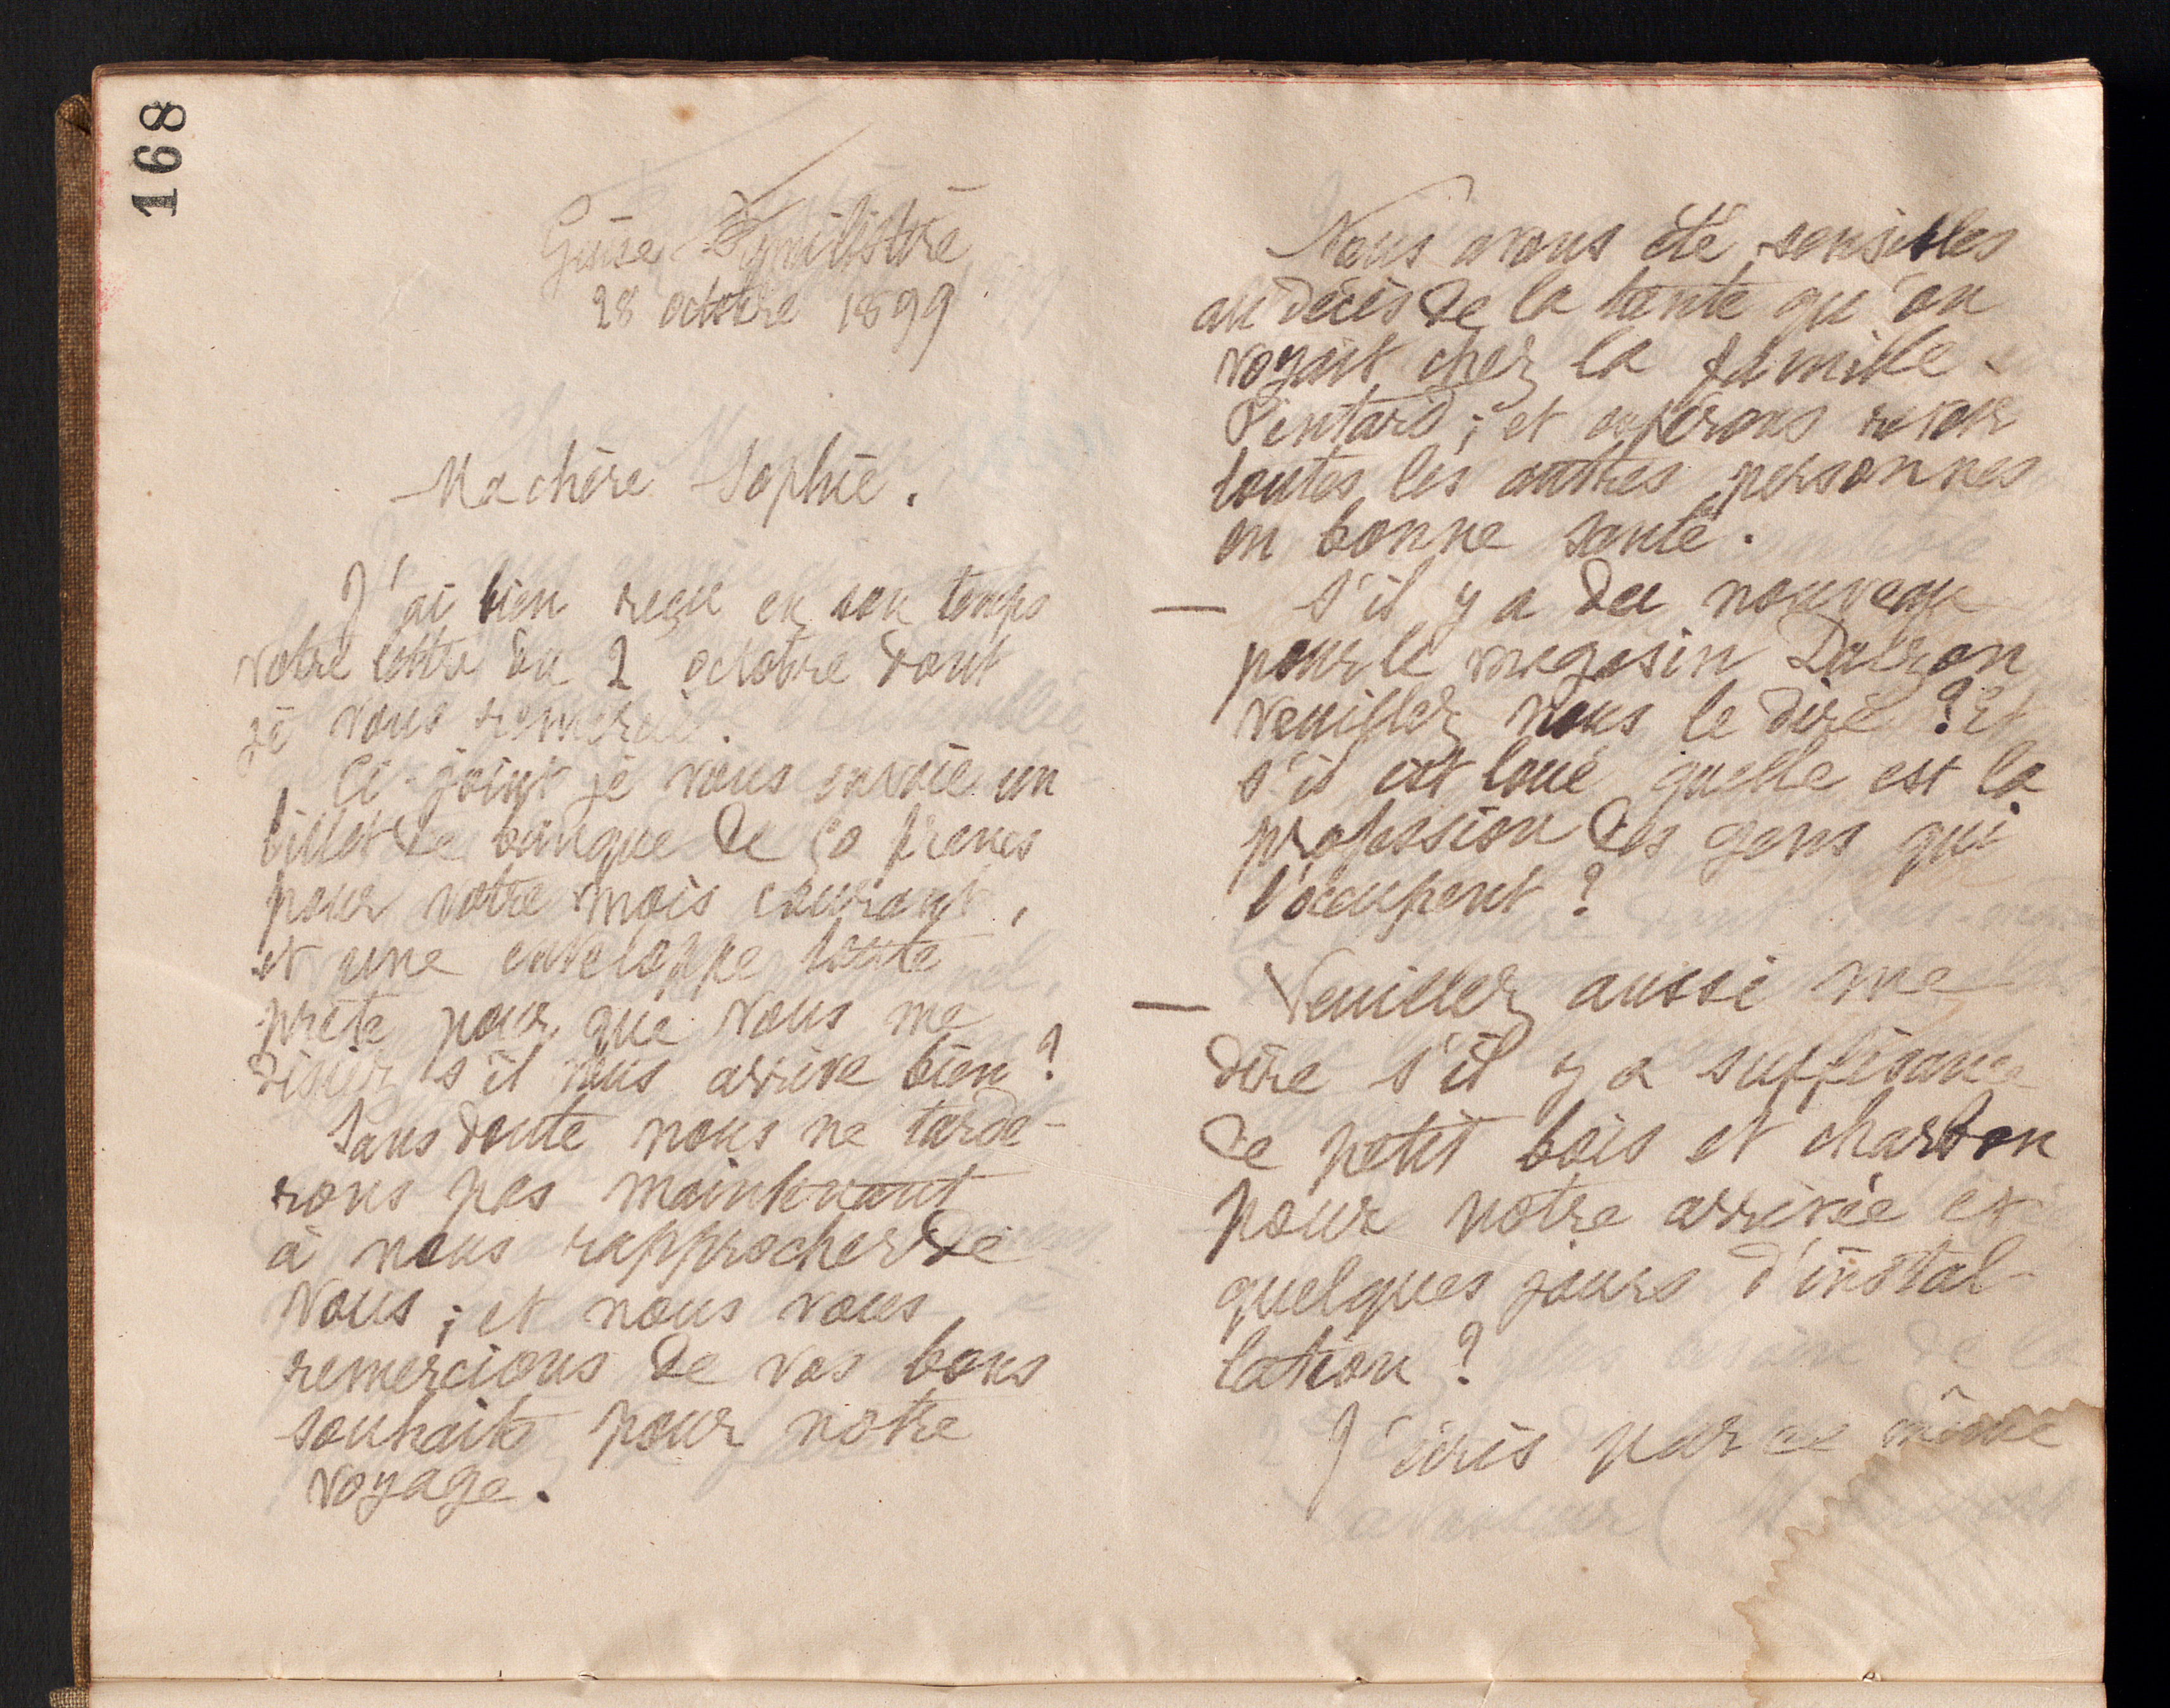 168
Guise Familistère
28 octobre 1899
Ma chère Sophie.
J'ai bien reçu en son temps
votre lettre du 2 octobre dont
je vous remercie.
Ci-joint je vous envoie un
billet de banque de 50 francs
pour votre mois courant,
et une enveloppe toute
prête pour que vous me
disiez s'il vous arrive bien ?
Sans doute nous ne tarde-
rons pas maintenant
à nous rapprocher de
vous ; et nous vous
remercions de vos bons
souhaits pour notre
voyage.
Nous avons été sensibles
au décès de la tante qu'on
voyait chez la famille
Pintard ; et espérons revoir
toutes les autres personnes
en bonne santé.
— S'il y a du nouveau
pour le magasin
veuillez nous le dire ? Et
s'il est loué quelle est la
profession des gens qui
l'occupent ?
— Veuillez aussi me
dire s'il y a suffisance
de petit bois et charbon
pour notre arrivée et
quelques jours d'instal-
lation ?
J'écris par ce même